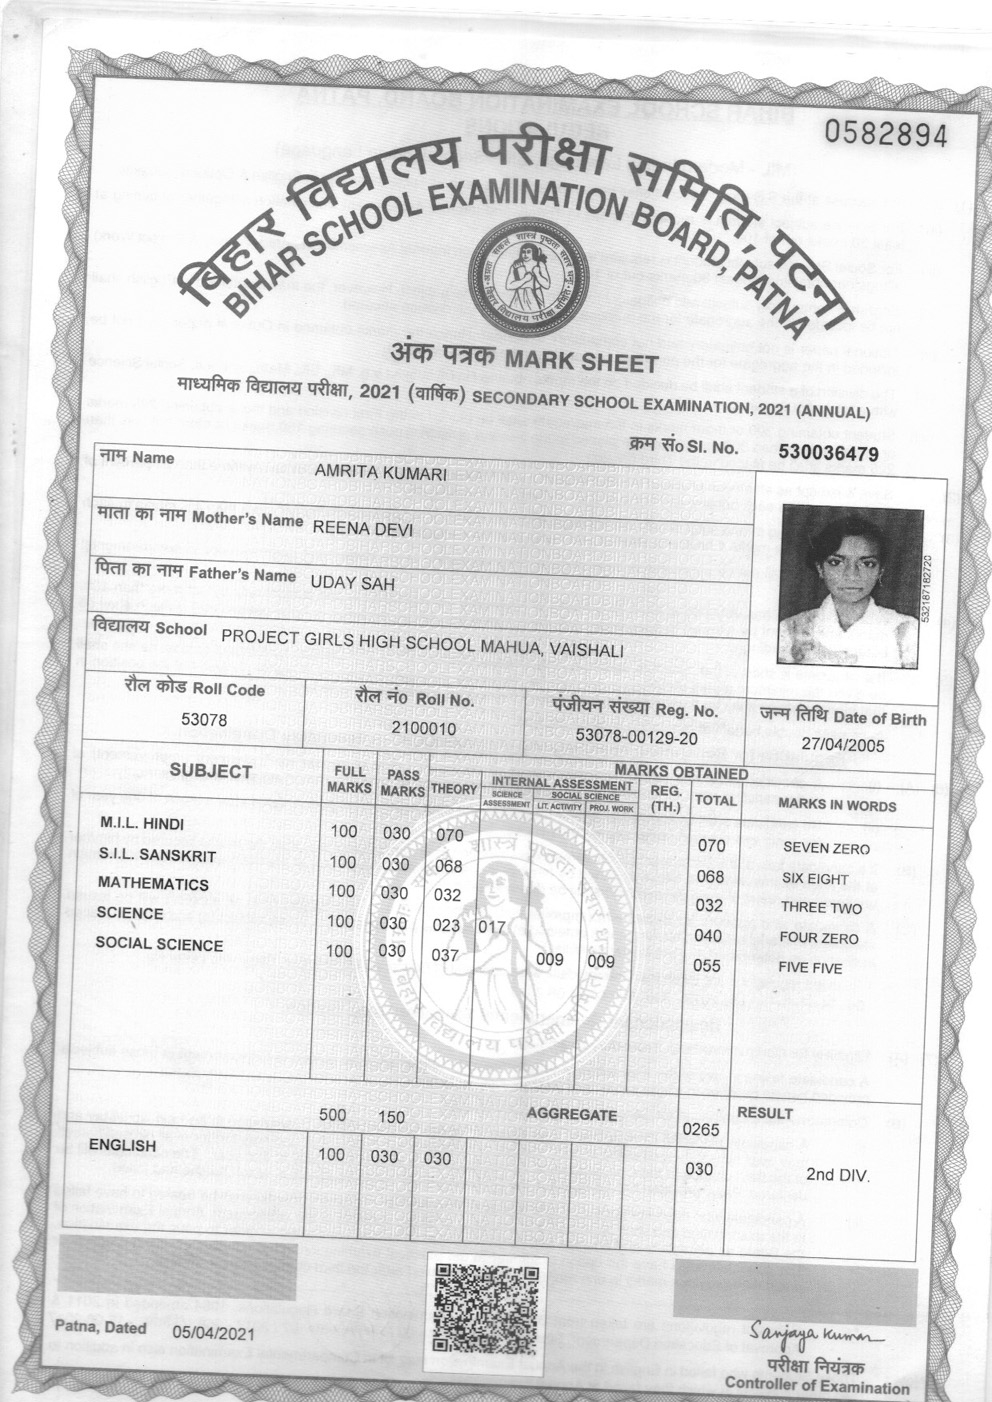 0582894
बिहार विद्यालय परीक्षा समिति, पटना
BIHAR SCHOOL EXAMINATION BOARD, PATNA
अंक पत्रक MARK SHEET
माध्यमिक विद्यालय परीक्षा, 2021 (वार्षिक) SECONDARY SCHOOL EXAMINATION, 2021 (ANNUAL)
क्रम सं० Sl. No. 530036479
नाम Name AMRITA KUMARI
माता का नाम Mother's Name REENA DEVI
पिता का नाम Father's Name UDAY SAH
विद्यालय School PROJECT GIRLS HIGH SCHOOL MAHUA, VAISHALI
532187182720
रौल कोड Roll Code रौल नं० Roll No. पंजीयन संख्या Reg. No. जन्म तिथि Date of Birth
53078 2100010 53078-00129-20 27/04/2005
SUBJECT FULL MARKS PASS MARKS MARKS OBTAINED
THEORY INTERNAL ASSESSMENT REG. (TH.) TOTAL MARKS IN WORDS
SCIENCE ASSESSMENT SOCIAL SCIENCE
LIT. ACTIVITY PROJ. WORK
M.I.L. HINDI 100 030 070 070 SEVEN ZERO
S.I.L. SANSKRIT 100 030 068 068 SIX EIGHT
MATHEMATICS 100 030 032 032 THREE TWO
SCIENCE 100 030 023 017 040 FOUR ZERO
SOCIAL SCIENCE 100 030 037 009 009 055 FIVE FIVE
500 150 AGGREGATE 0265 RESULT
ENGLISH 100 030 030 030 2nd DIV.
Patna, Dated 05/04/2021
Sanjaya Kumar
परीक्षा नियंत्रक
Controller of Examination